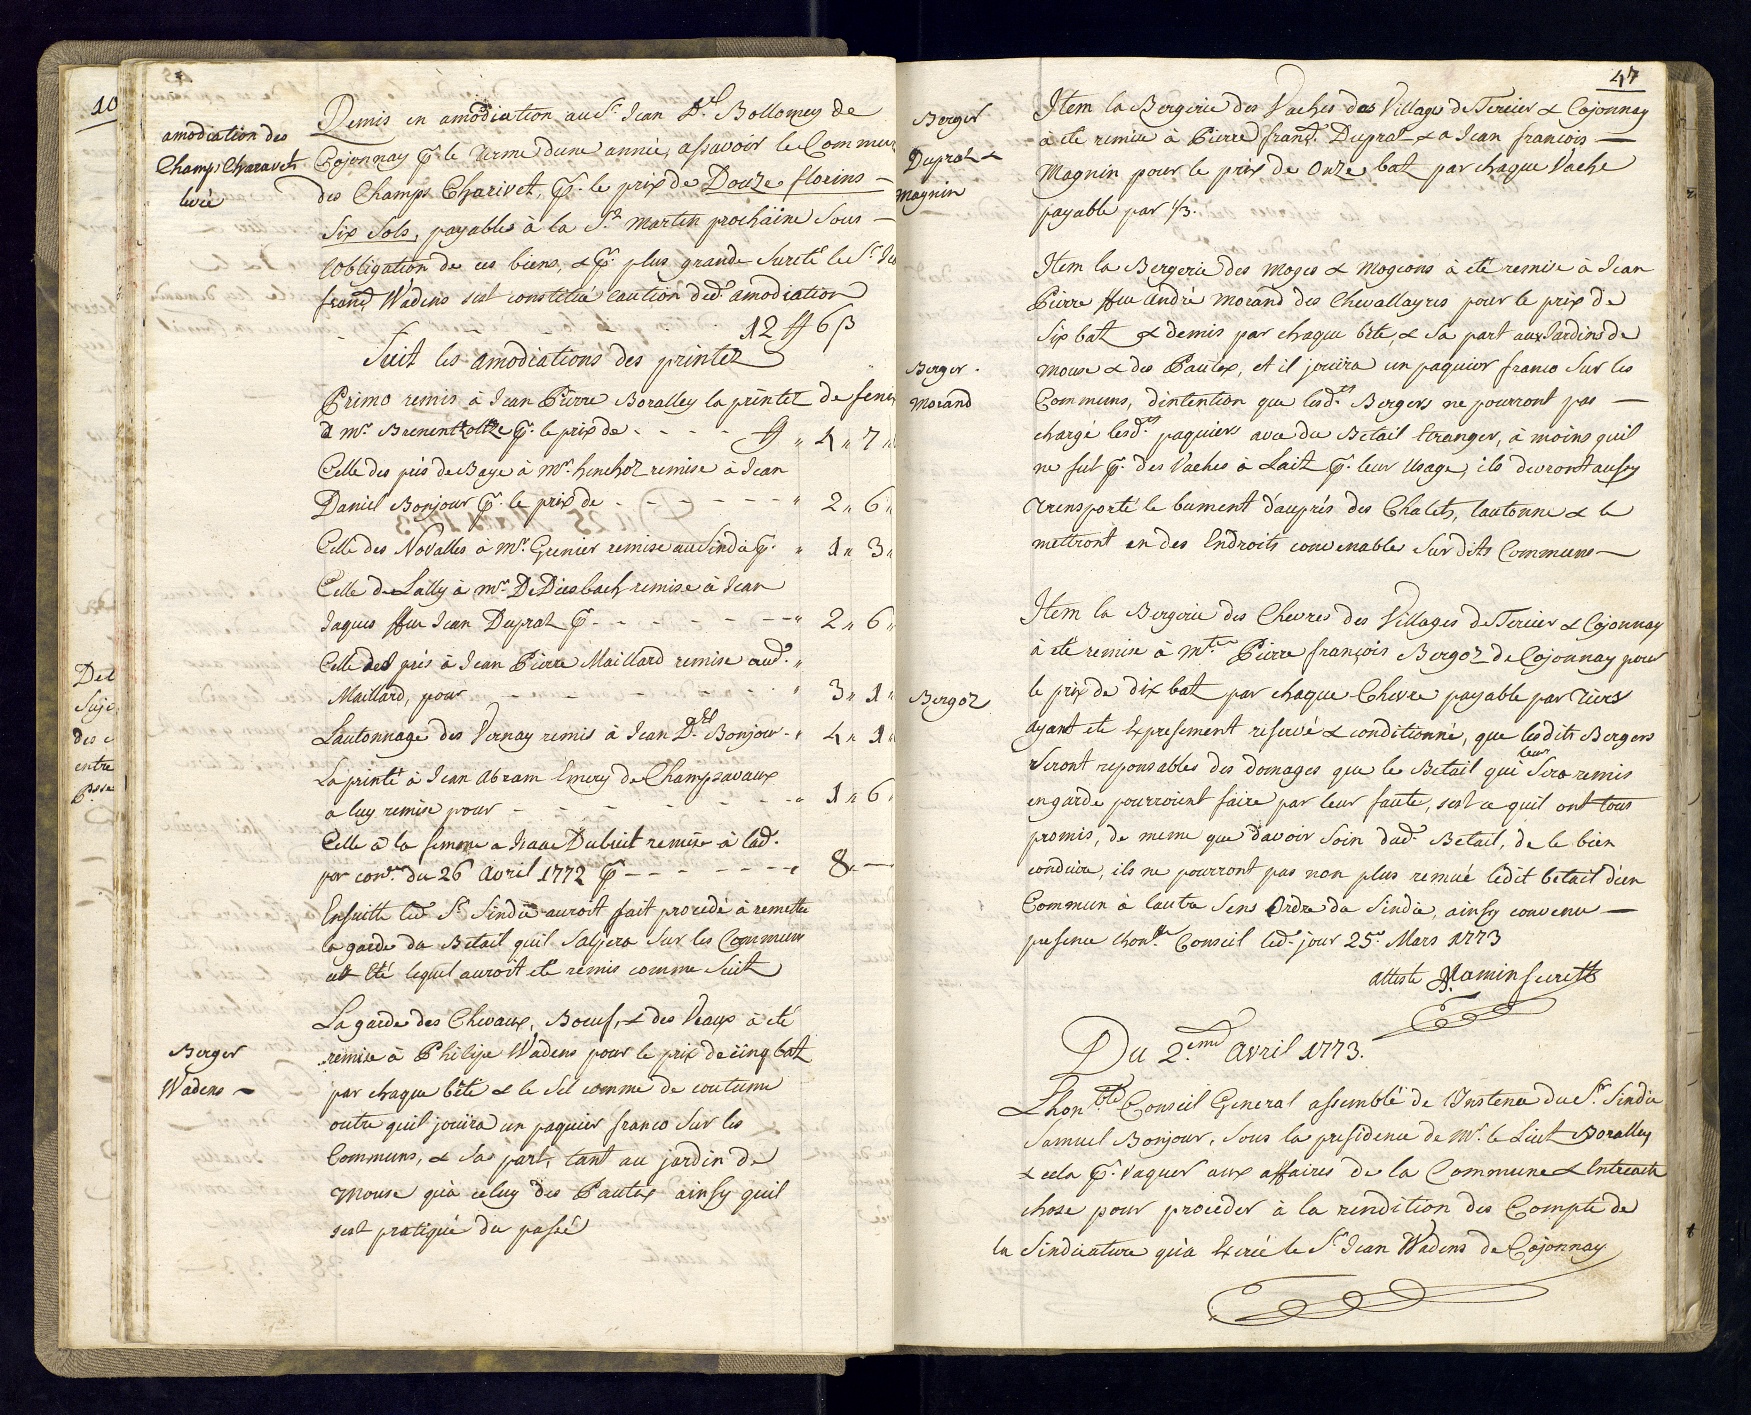 10
amodiation des
Champs Charavet
livié
Remis en amodiation au Sr. Jean Dl. Bollomey de
Cojonnay pr. le terme dune année, assavoir le Commun
des Champs Charivet, pr. le prix de Douze florins —
Six Sols, payables à la St. Martin prochaine Sous —
lobligation de ces biens, & pr. plus grande Sureté le Sr.
franç Wadens sest constitué caution dud. amodiation
12 ff 6 β
Suit les amodiations des printez
Primo remis à Jean Pierre Boralley la printez de
à mr. Brenentz pr. le prix de - - - - ff „ 4 „ 7 „
Celle des prés de Baye à mr. hinchoz remise à Jean
Daniel Bonjour pr. le prix de - - - - - - - „ 2 „ 6 „
Celle des Novalles à mr. Grenier remise au Sindic pr. „ 1 „ 3 „
Celle de Lally à mr. De Diesbach remise à Jean
Jaques ffeu Jean Dupraz pr. - - - - - - - „ 2 „ 6 „
Celle des prés à Jean Pierre Maillard remise aud. „
Maillard, pour - - - - - - - „ 3 „ 1 „
Lautonnage des Vernay remis à Jean Dl. Bonjour - „ 4 „ 1 „
La printé à Jean Abram Emery de Champsavaux
a luy remise pour - - - - - - - „ 1 „ 6 „
Celle à la femme a Isaac Dubuit remise à lad.
par con. du 26 Avril 1772 pr - - - - - - - „ 8 „ —
Ensuitte led. Sr. Sindic auroit fait procedé à remettre
la garde du Betail quil Salpera Sur les Commun
cet Eté lequel auroit eté remis comme Suit
Berger
Wadens ~
La garde des Chevaux, Boeuf, & des Veaux à eté
remise à Philipe Wadens pour le prix de cinq batz
par chaque bête & le Sel comme de coutume
outre quil jouira un paquier franco Sur les
Communs, & Sa part, tant au jardin de
Mouse qu'à celuy des Pautex ainsy quil
sest pratiqué du passé
47
Berger
Dupraz &
Magnin
Item la Bergerie des Vaches des Village de Tercier & Cojonnay
à eté remise à Pierre franç. Dupraz & a Jean françois —
Magnin pour le prix de Onze batz par chaque Vache
payable par 1/3.
Berger .
Morand
Item la Bergerie des Moges & Mogeons à eté remise à Jean
Pierre ffeu André Morand des Chevallayres pour le prix de
Six batz & demis par chaque bête, & Sa part aux Jardins de
Mouse & des Pautex, et il jouira un paquier franco Sur les
Communs, dintention que lesds. Bergers ne pourront pas —
chargé lesds. paquiers avec du Betail Etranger, à moins quil
ne fut pr. des Vaches à Lait pr. leur Usage, ils devront aussy
transporté le bument d'auprés des Chalets, lautonne & le
mettront en des Endroits convenables Sur dits Communs —
Bergoz
Item la Bergerie des Chevres des Villages de Tercier & Cojonnay
à eté remise à mtre Pierre françois Bergoz de Cojonnay pour
le prix de dix batz par chaque Chevre payable par tiers
ayant eté Expresement reservé & conditionné, que lesdits Bergers
Seront reponsables des domages que le Betail qui leur Sera remis
en garde pourroient faire par leur faute, sest a quil ont tous
promis, de meme que d'avoir Soin dud. Betail, de le bien
conduire, ils ne pourront pas non plus remué ledit betail d'un
Commun à lautre Sens Ordre du Sindic, ainsy convenu —
presence lhon.ble Conseil led. jour 25e. Mars 1773
atteste
Du 2.eme Avril 1773.
Lhon.ble Conseil General assemblé de L'instence du Sr. Sindic
Samuel Bonjour, Sous la presidence de Mr. le Lieut Boralley
& cela pr. vaquer aux affaires de la Commune & Entreaute
chose pour procéder à la rendition des Compte de
la Sindicature qu'a Exercé le Sr. Jean Wadens de Cojonnay